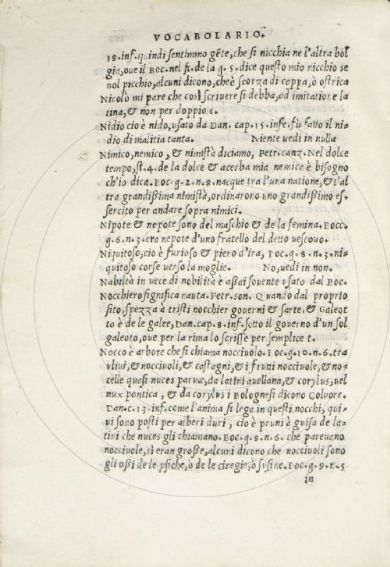 VOCABOLARIO.
18.inf. quindi sentimmo gẽte, che si nicchia ne l'altra bol
gia, oue il BOC. nel fi. de la g. 5. dice questo mio nicchio se
nol picchio, alcuni dicono, che è scorza di coppa, ò ostrica
Nicolò mi pare che così scriuere si debba, ad imitatione la
tina, & non per doppio t.
Nidio cio è nido, usato da DAN. cap. 15. infe. fù fatto il ni-
dio di malitia tanta. Niente uedi in nulla
Nimico, nemico, & nimistà diciamo, Petr. canz. Nel dolce
tempo, st. 4. de la dolce & acerba mia nemica è bisogno
ch'io dica. BOC. g. 2. n. 8. na; que tra l'una natione, & l'al
tra grandissima nimistà, ordinarono uno grandissimo es-
sercito per andare sopra nimici.
Nipote & nepote sono del maschio & de la femina. BOCC.
g. 6. n. 3. era nepote d'uno fratello del detto uescouo.
Niquitoso, cio è furioso & pieno d'ira, BOC. g. 8. n. 3. ni-
quitoso corse uerso la moglie. No, uedi in non.
Nabiltà in uece di nobilità è assai souente usato dal BOC.
Nocchiero significa nauta. Petr. son. Quando dal proprio
sito, spezza à tristi nocchier gouerni & sarte. & Galeot
to è de le galee, DAN. cap. 8. inf. sotto il gouerno d'un sol
galeoto, oue per la rima lo scrisse per semplice t.
Nocco è arbore che si chiama nocciuolo. BOC. g. 10. n. 6. tra
uliui, & nocciuoli, & castagni, & i frutti nocciuole, & no-
celle quasi nuces parua, da latini auellana, & corylus, nel
nux pontica, & da corylus i Bolognesi dicono Coluore.
DAN. c. 13. inf. come l'anima si lega in questi nocchi, qui-
ui sono posti per alberi duri, cio è pruni à guisa de la-
tini che nuces gli chiamano. BOC. g. 8. n. 6. che pareuano
nocciuole, sì eran grosse, alcuni dicono che nocciuoli sono
gli ossi de le psiche, ò de le ciregie, ò susine. BOC. g. 9. n. 5
in